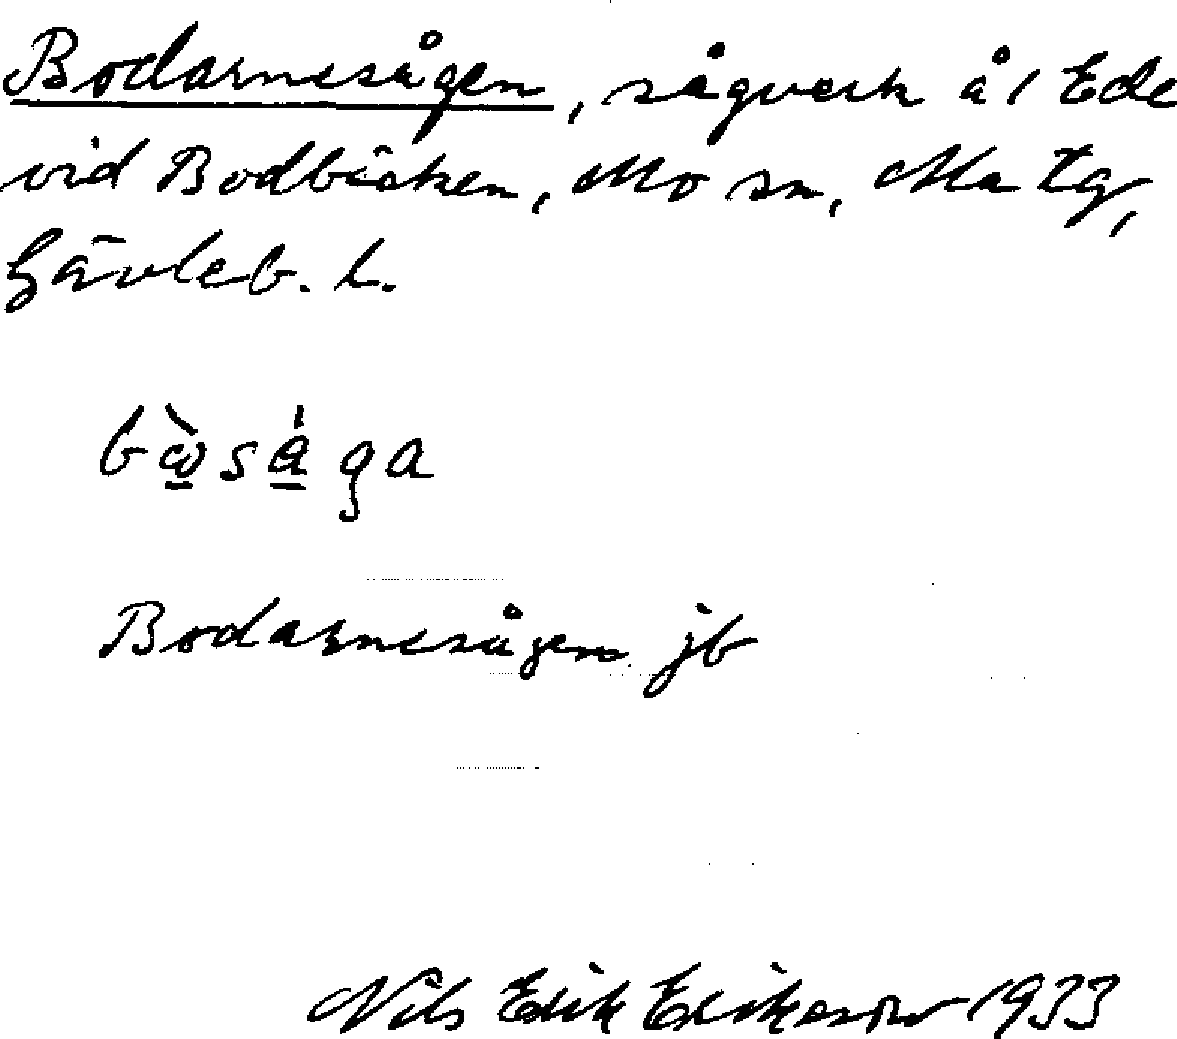 Bodarnesågen, sågverk å 1 Ede
vid Bodbäcken, Mo sn, Ma tg,
Gävleb. l.
Bodarnesågen jb
Nils Erik Eriksson 1933